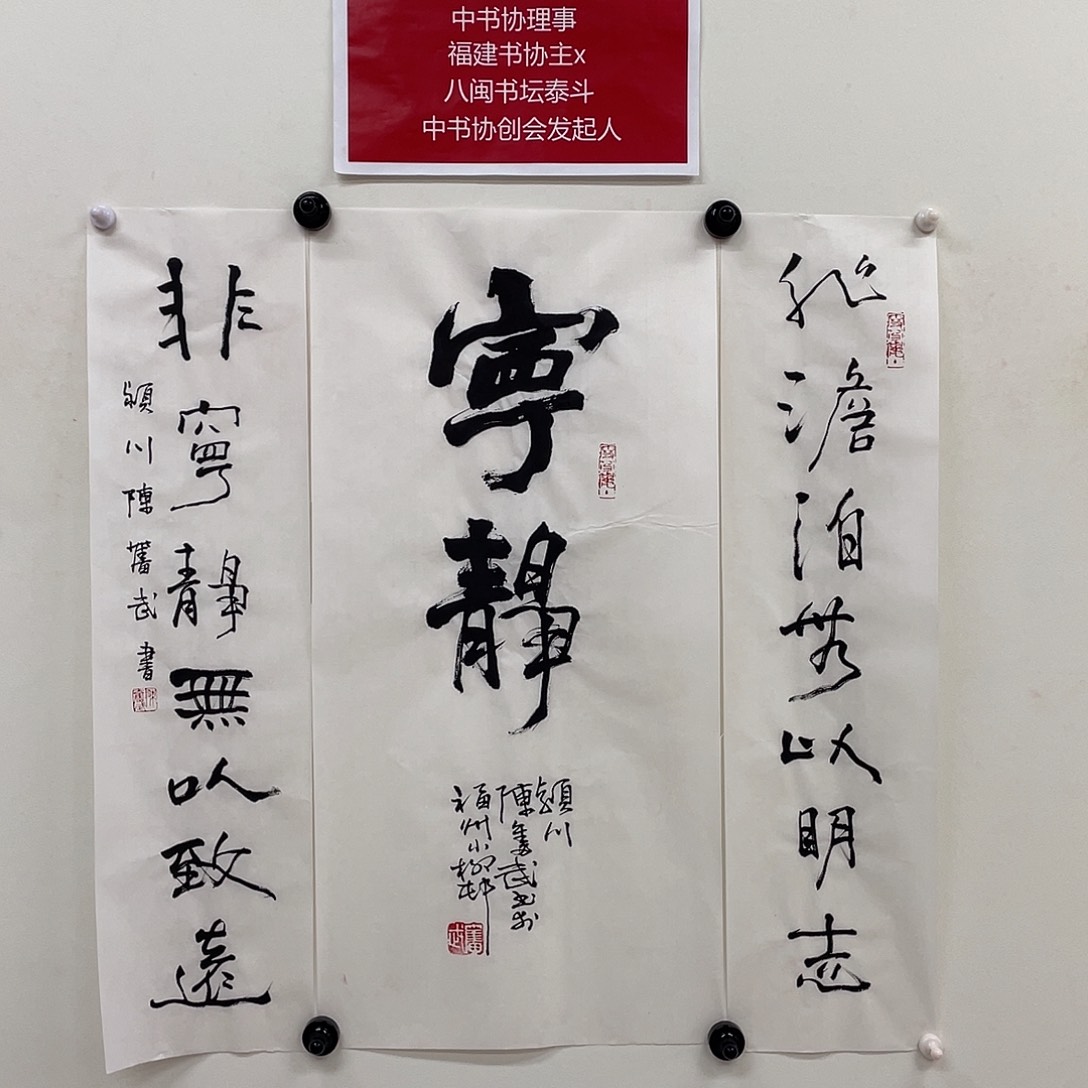 中书协理事
福建书协主x
八闽书坛泰斗
中书协创会发起人
非澹泊無以明志
寧靜
潁川
陳奮武書於
福州小柳邨
非寧靜無以致遠
潁川陳奮武書